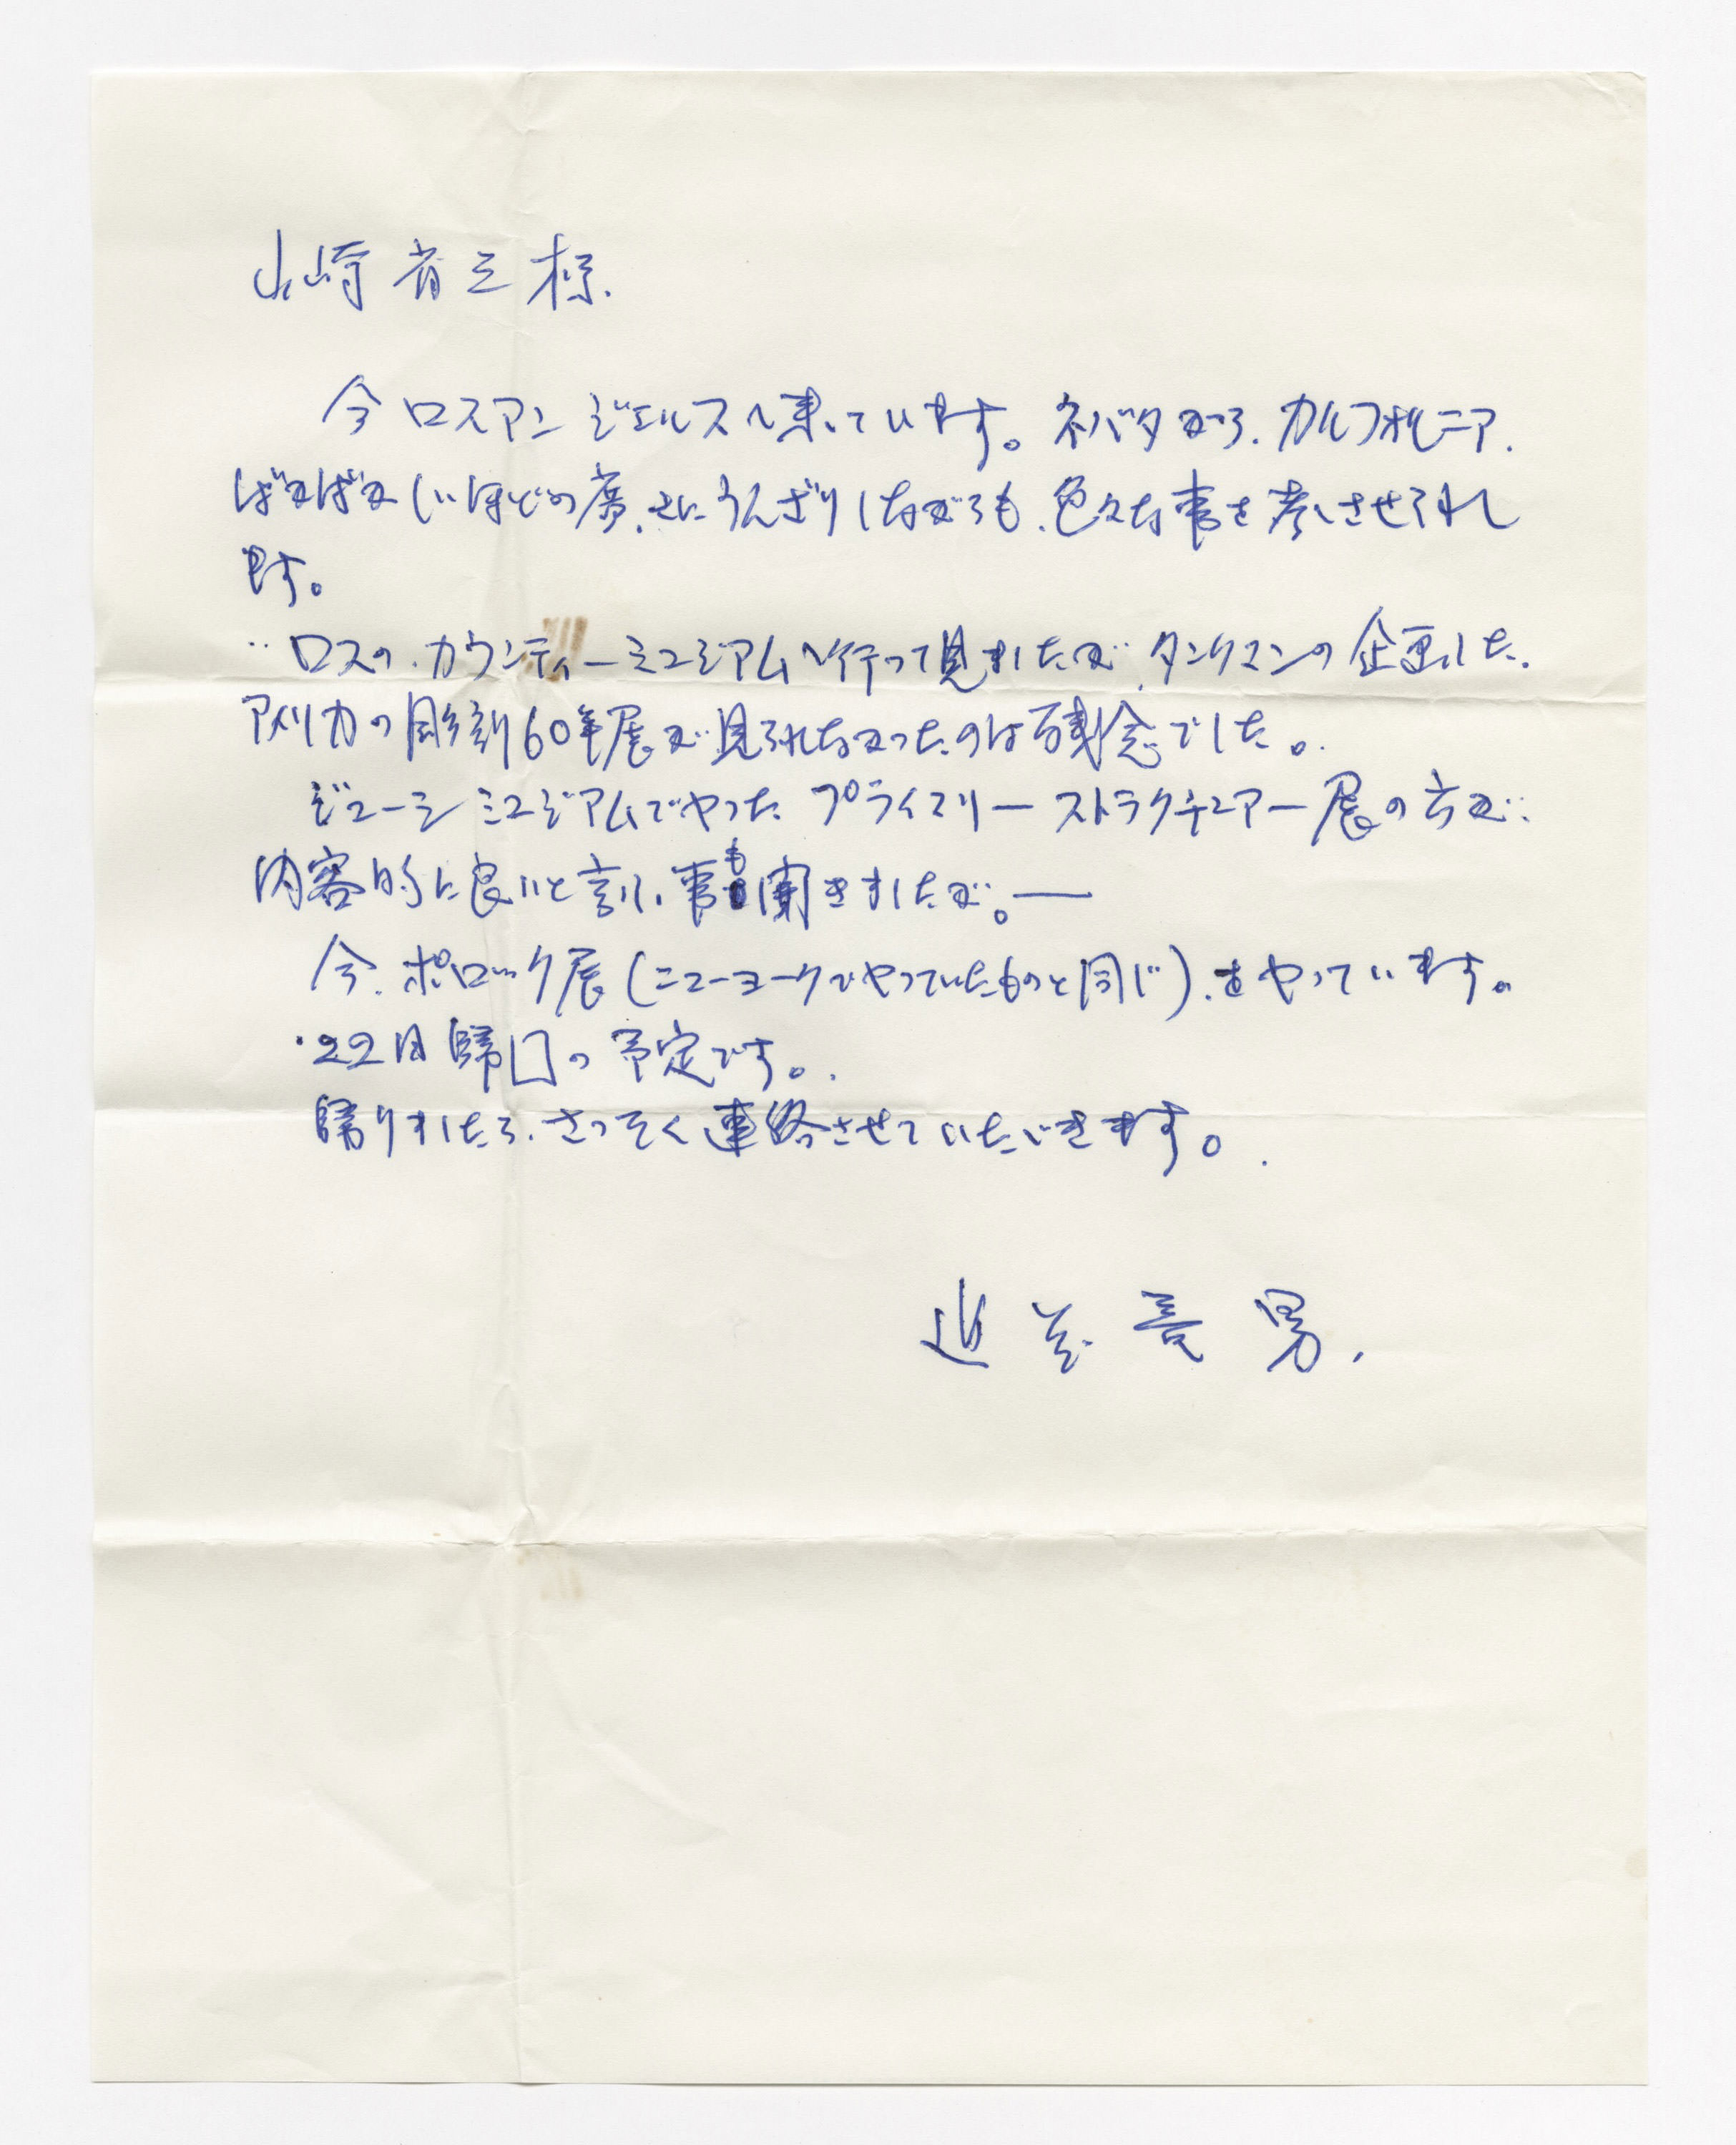 山崎省三様.
今ロスアンジェルスへ来ています。ネバダから、カルフォルニア、
ばかばかしいほどの広さにうんざりしながらも、色々な事を考へさせられ
ます。
ロスの、カウンティーミュジアムへ行って見ましたが、タックマンの企画した、
アメリカの彫刻60年展が見られなかったのは残念でした。
ジューシミュジアムでやったプライマリーストラクチュアー展の方が
内容的に良いと言う事も聞きましたが。―
今、ポロック展(ニューヨークでやっていたものと同じ)、をやっています。
22日帰国の予定です。
帰りましたら、さっそく連絡させていただきます。
男.